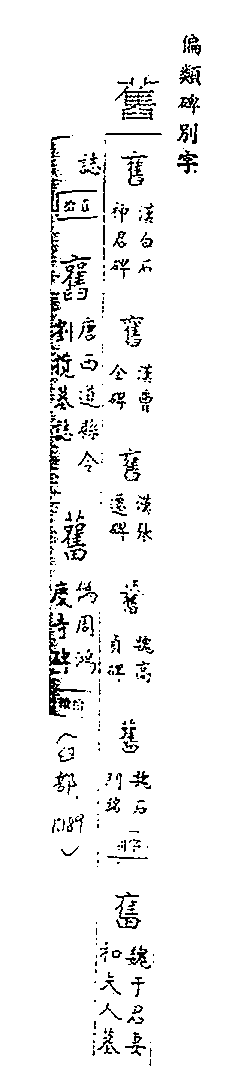 偏類碑別字
舊
舊 漢白石神君碑
舊 漢曹全碑
舊 漢張遷碑
舊 魏高貞碑
舊 魏石門銘
舊 魏于君妻和夫人墓誌
舊 唐西道縣令劉攬墓誌
舊 偽周鴻慶寺碑
(臼部.